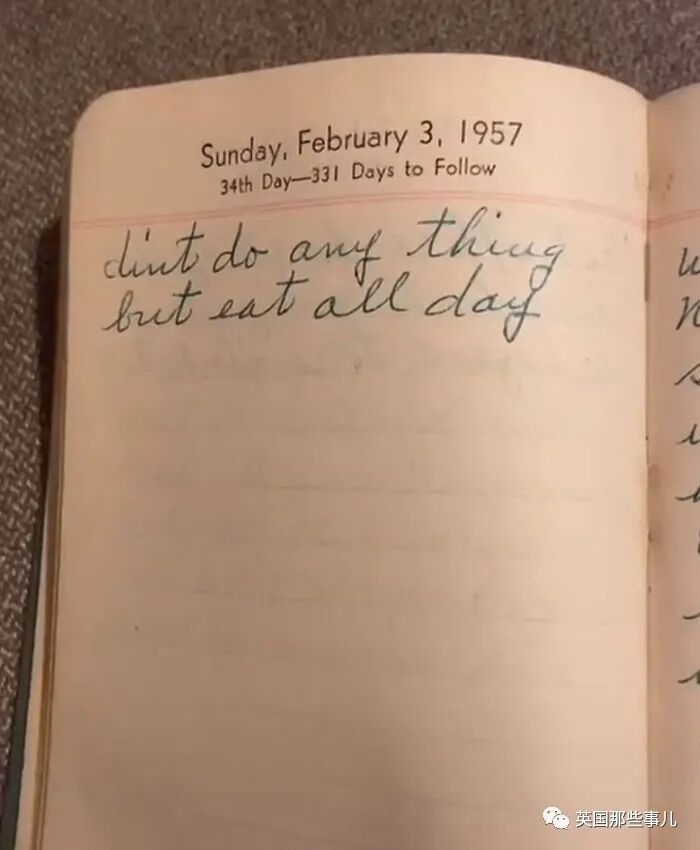 Sunday, February 3, 1957
34th Day—331 Days to Follow
dint do any thing
but eat all day
英国那些事儿